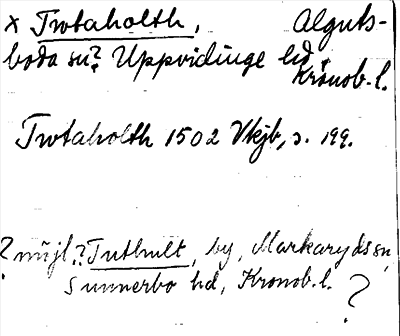 x Twtaholth, Alguts-
boda sn? Uppvidinge hd,
Kronob. l.
Twtaholth 1502 Vkjb, s. 199.
? möjl.? Tuthult, by, Markaryds sn,
Sunnerbo hd, Kronob. l. ?